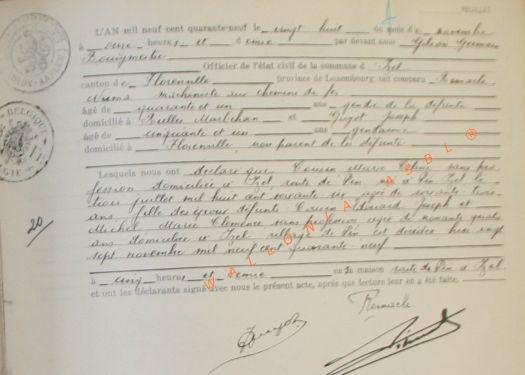 L'AN mil neuf cent quarante-neuf le vingt huit du mois de novembre
à onze heures et demie par devant nous Gilson Germain
Bourgmestre
Officier de l'état civil de la commune d' Izel
canton de Florenville province de Luxembourg, ont comparu Remacle
machiniste aux chemins de fer
âgé de quarante et un ans gendre de la défunte
domicilié à Bulles et Guyot Joseph
âgé de cinquante et un ans gendarme
domicilié à Florenville, non parent de la défunte
Lesquels nous ont déclaré que Cousin Marie sans pro
fession domiciliée à Izel route de Pin née à Pin Izel le
juillet mil huit cent agée de
ans fille des époux défunts Cousin Edouard Joseph et
Michel Marie Clémence sans profession agée de
ans domiciliée à Izel village de Pin est décédée hier vingt
sept novembre mil neuf cent quarante neuf
à heures et demie en sa maison route de Pin à Izel
et ont les déclarants signé avec nous le présent acte, après que lecture leur en a été faite.
20
Remacle
Guyot
BELGIQUE
WALLONIA ASBL ®